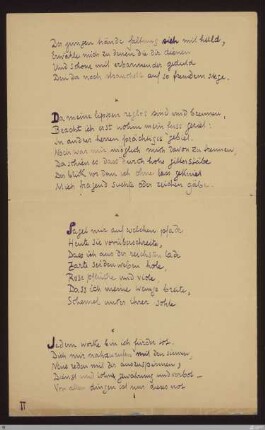 Der jungen hände faltung sieh mit huld,
Erwähle mich zu denen die dir dienen
Und schone mit erbarmender geduld
Den der noch strauchelt auf so fremdem stege.
Da meine lippen reglos sind und brennen,
Beacht ich erst wohin mein fuss geriet:
In andrer herren prächtiges gebiet.
Noch war vielleicht mir möglich mich zu trennen,
Da schien es dass durch hohe gitterstäbe
Der blick vor dem ich ohne lass gekniet
Mich fragend suchte oder zeichen gäbe.
Saget mir auf welchem pfade
Heute sie vorüberschreite,
Dass ich aus der reichsten lade
Zarte seidenweben hole,
Rose pflücke und viole
Dass ich meine wange breite,
Schemel unter ihrer sohle
Jedem werke bin ich fürder tot.
Dich mir nahzurufen mit den sinnen,
Neue reden mit dir auszuspinnen,
Dienst und lohn gewährung und verbot –
Von allen dingen ist nur dieses not
II